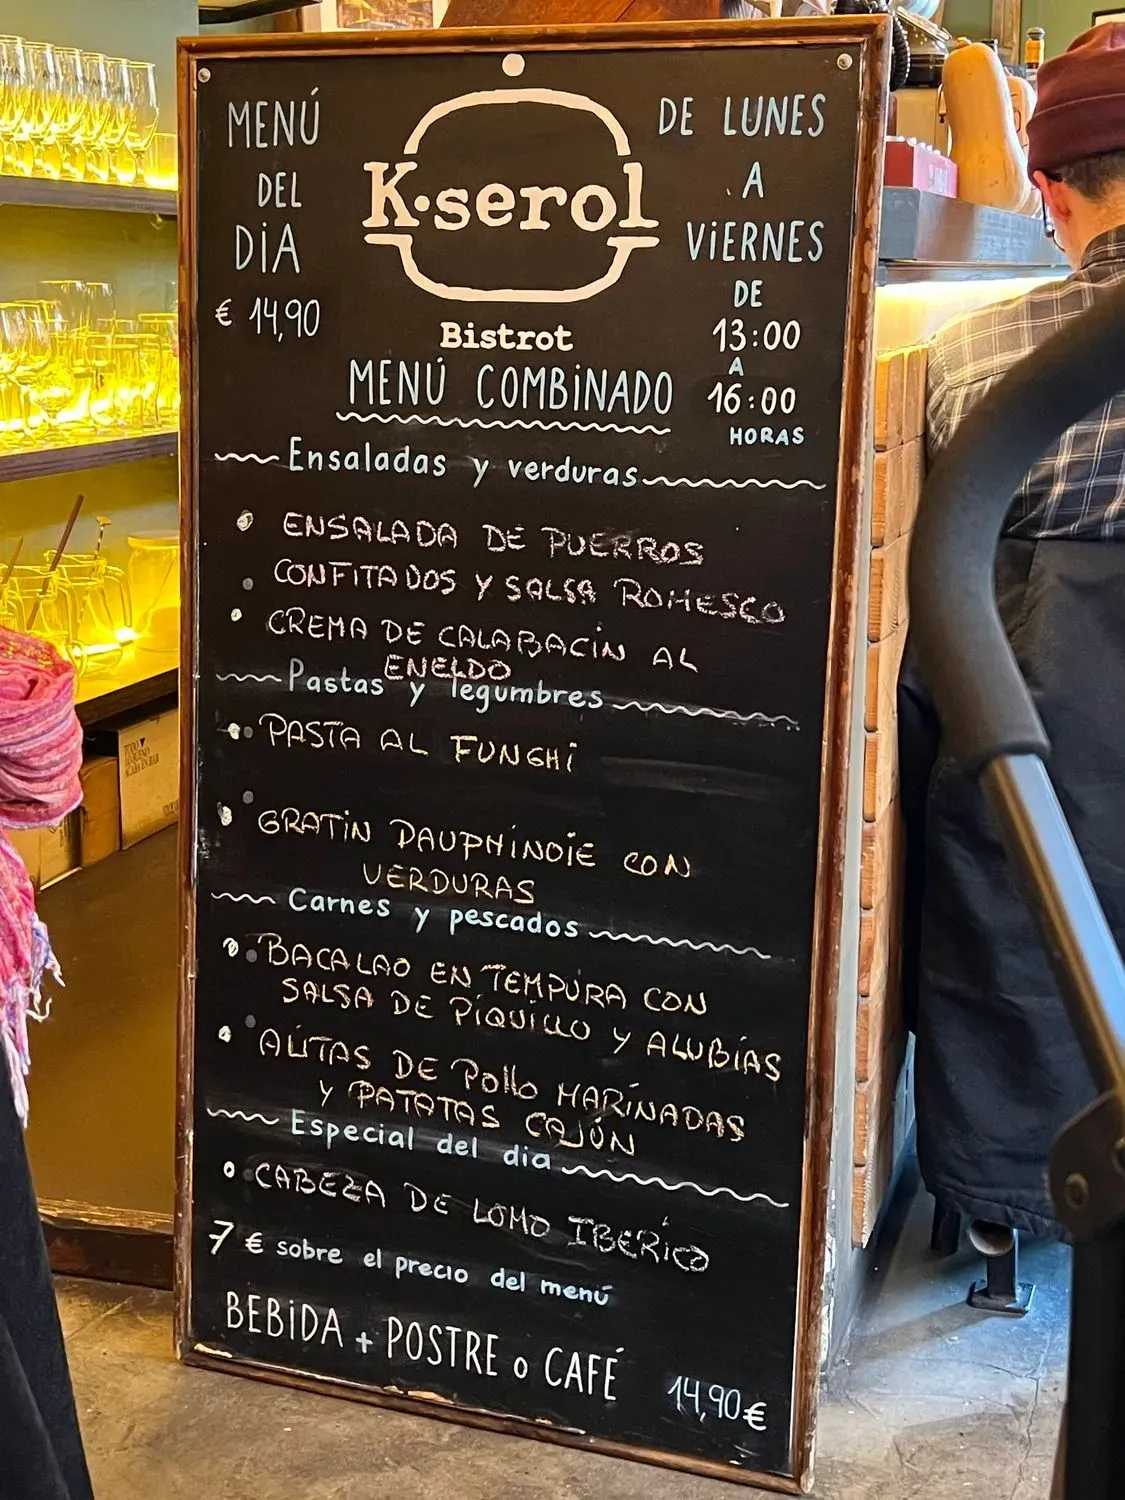 MENÚ
DEL
DiA
€ 14,90
K·serol
Bistrot
DE LUNES
A
ViERNES
DE
13:00
A
16:00
HORAS
MENÚ COMBiNADO
Ensaladas y verduras
ENSALADA DE PUERROS
CONFITADOS Y SALSA ROMESCO
CREMA DE CALABACiN AL
ENELDO
Pastas y legumbres
PASTA AL FUNGHi
GRATiN DAUPHiNOiE CON
VERDURAS
Carnes y pescados
BACALAO EN TEMPURA CON
SALSA DE PiQUiLLO Y ALUBiAS
ALiTAS DE Pollo MARiNADAS
Y PATATAS CAJÚN
Especial del dia
CABEZA DE LOMO IBERiCO
7 € sobre el precio del menú
BEBiDA + POSTRE o CAFÉ 14,90€